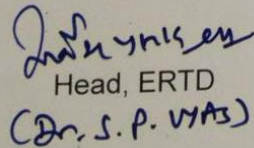 Head, ERTD
(Dr. S. P. VYAS)